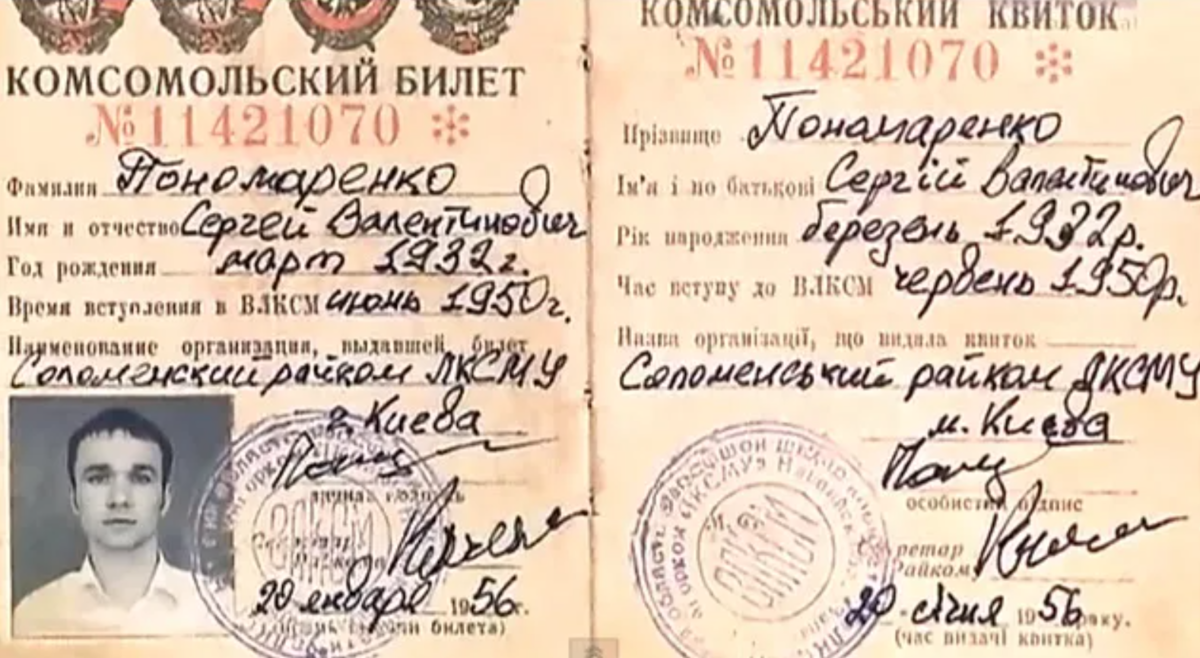 КОМСОМОЛЬСКИЙ БИЛЕТ
№11421070
Фамилия Пономаренко
Имя и отчество Сергей Валентинович
Год рождения март 1932 г.
Время вступления в ВЛКСМ июнь 1950 г.
Наименование организации, выдавшей билет
Соломенский райком ЛКСМУ
г. Киева
личная подпись
ВЛКСМ
20 января 1956 г.
КОМСОМОЛЬСЬКИЙ КВИТОК
№11421070
Прізвище Пономаренко
Ім'я і по батькові Сергій Валентинович
Рік народження березень 1932 р.
Час вступу до ВЛКСМ червень 1950 р.
Назва організації, що видала квиток
Соломенський райком ЛКСМУ
м. Києва
особистий підпис
Секретар
Райкому
ВЛКСМ
20 січня 1956 року.
(час видачі квитка)